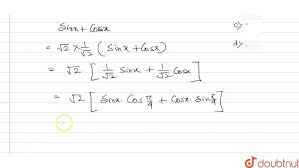 Sinx + Cosx
= √2 × 1/√2 (Sinx + Cosx)
= √2 [ 1/√2 Sinx + 1/√2 Cosx ]
= √2 [ Sinx. Cos π/4 + Cosx. Sin π/4 ]
doubtnut